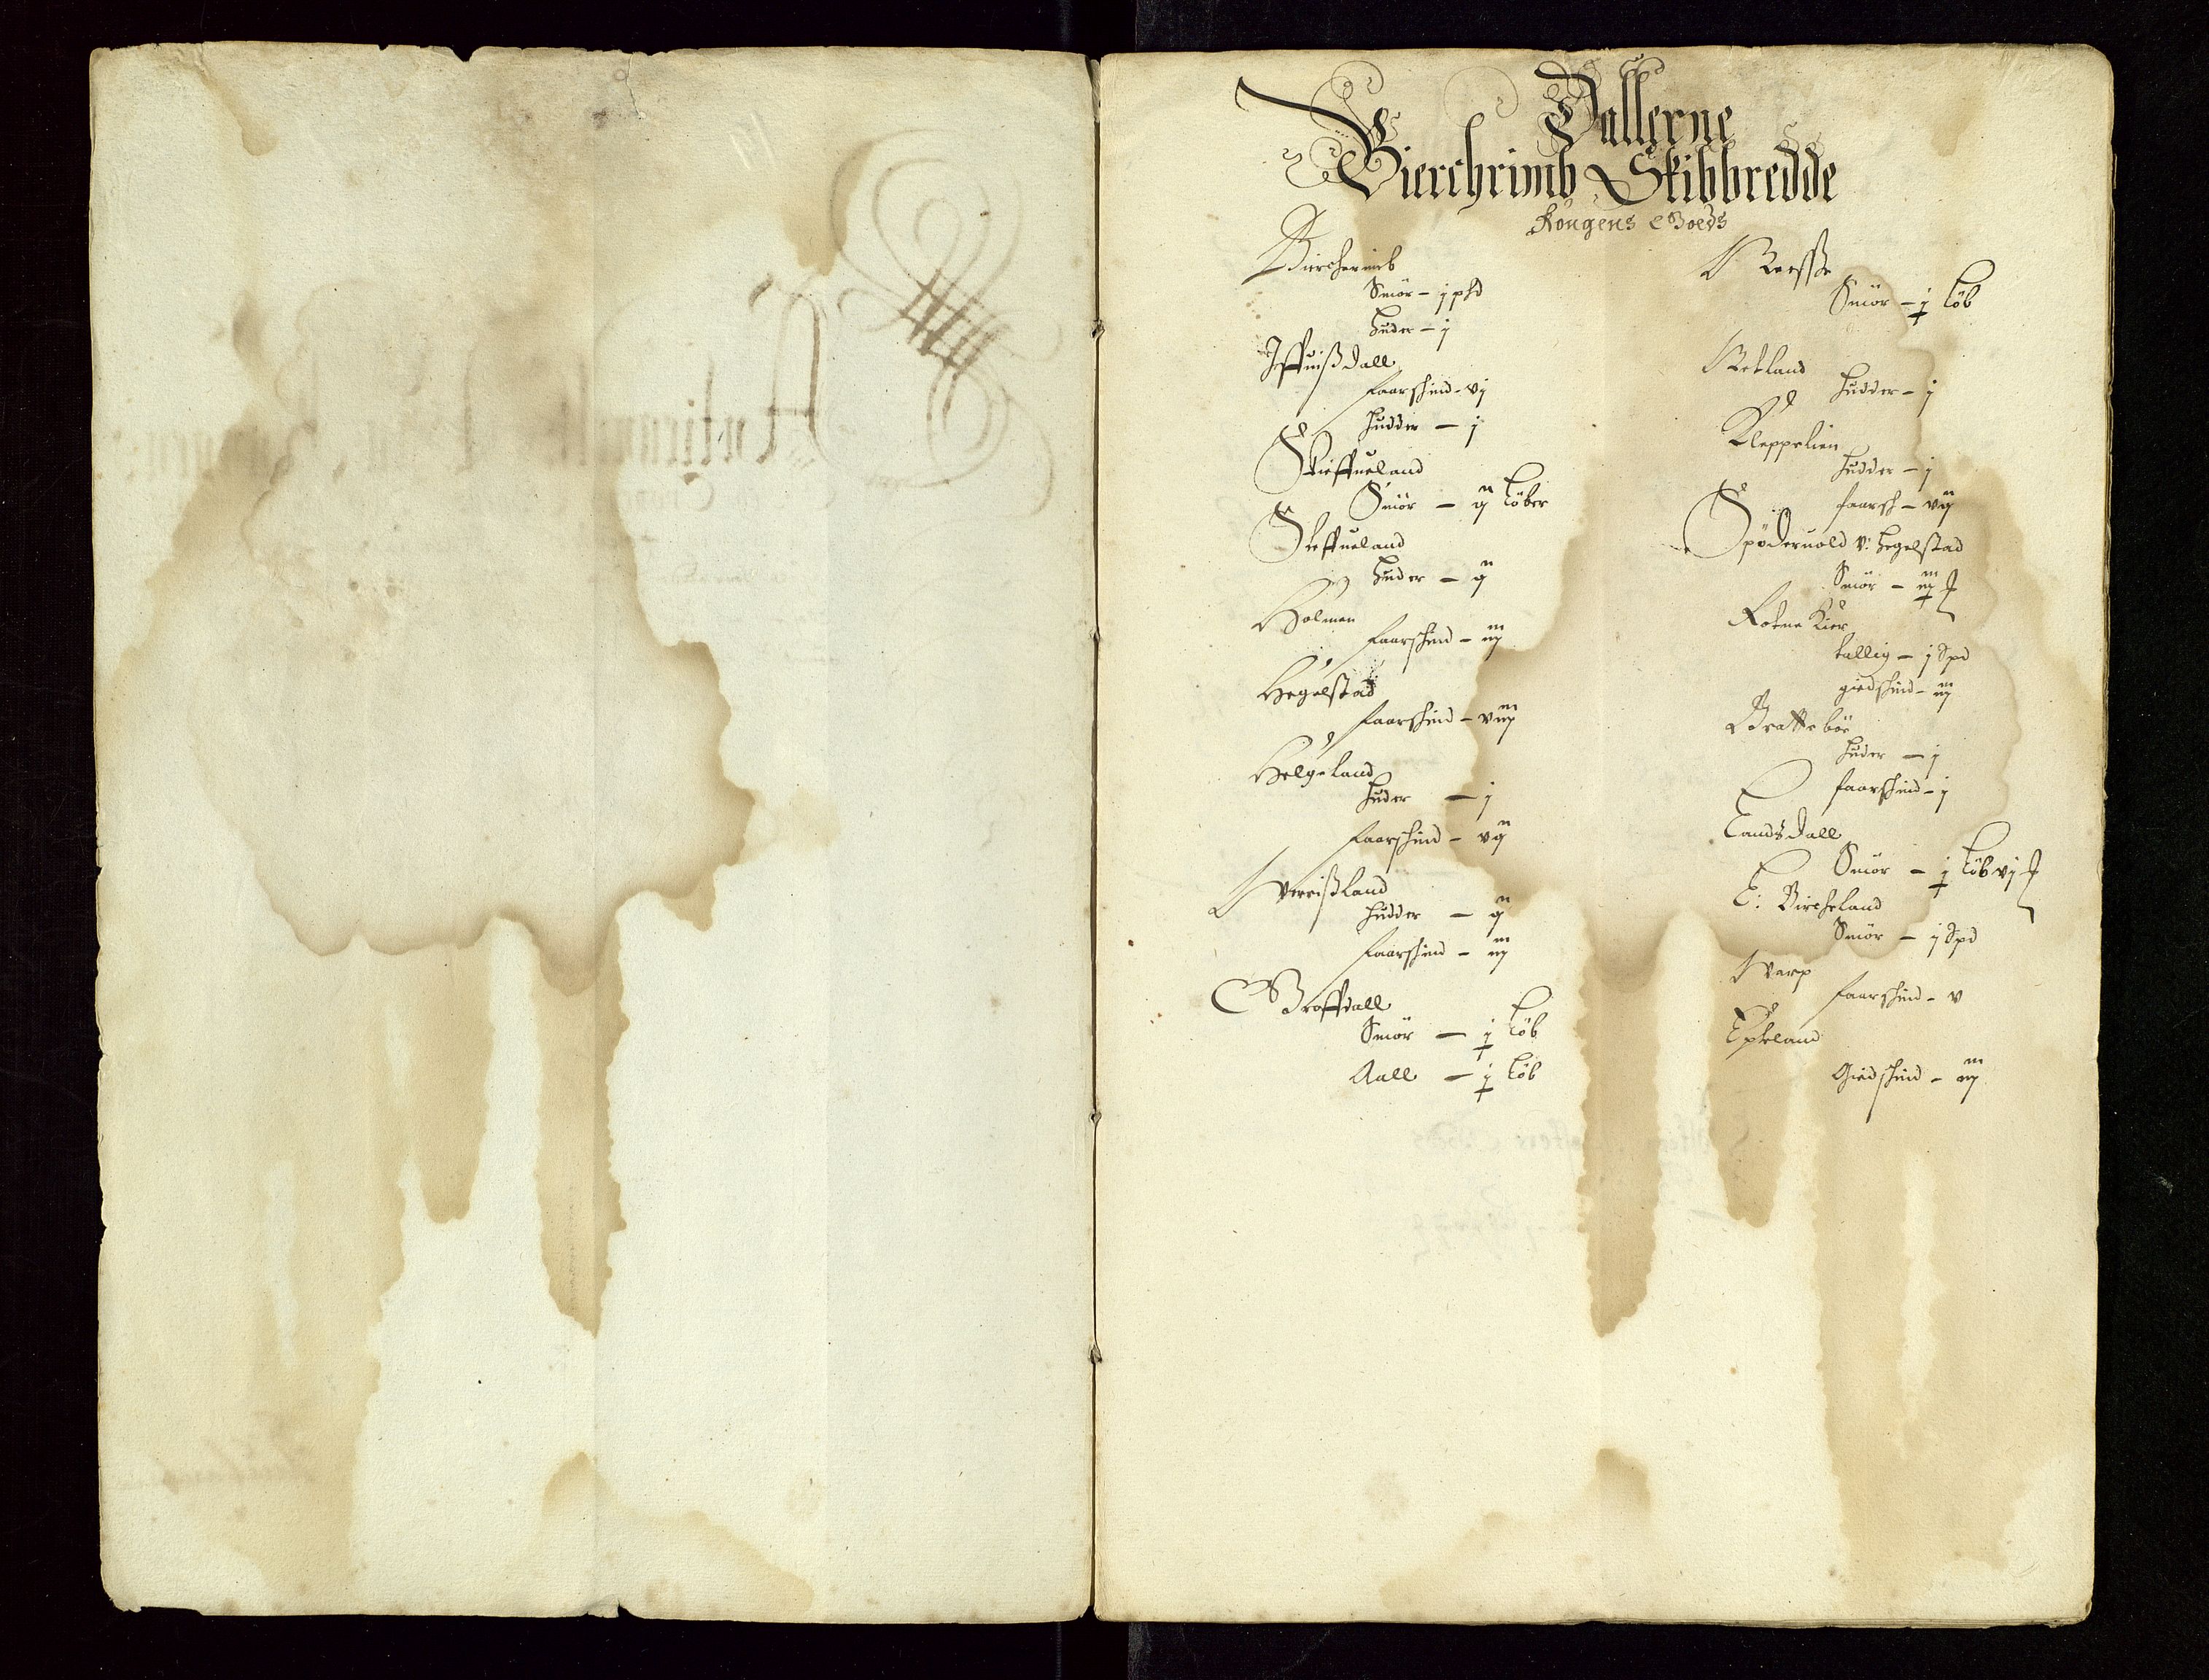 Dallerne
Bierchrimb Skibbredde
Kongens Goeds
Bircherimb
Smör – j phd
huder – j
Jeffuißdall
faarskind – vj
hudder – j
Skieffueland
Smör – ij Løber
Skeffueland
huder – ij
Holmen
faarskind – iij
Hegelstad
faarskind – viij
Helgeland
huder – j
faarskind – vij
Verrißland
hudder – ij
faarskind – iij
Groffdall
Smör – j Løb
Aall – j Løb
Smör – j Løb
Rekland
hudder – j
Kleppelien
hudder – j
faarsk – vij
Spöderuold v: Hegelstad
Smör – iij
Kier
kallig – j Spd
giedskind – iij
Bratteböe
huder – j
faarskind – j
Landsdall
Smör – j Løb vj
L: Bircheland
Smör – j Spd
Varp
faarskind – v
Epeland
Giedskind – iij